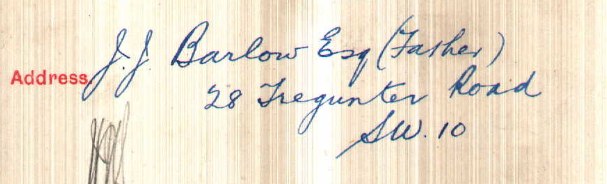 J. J. Barlow Esq (Father)
Address.
28 Tregunter Road
S.W. 10